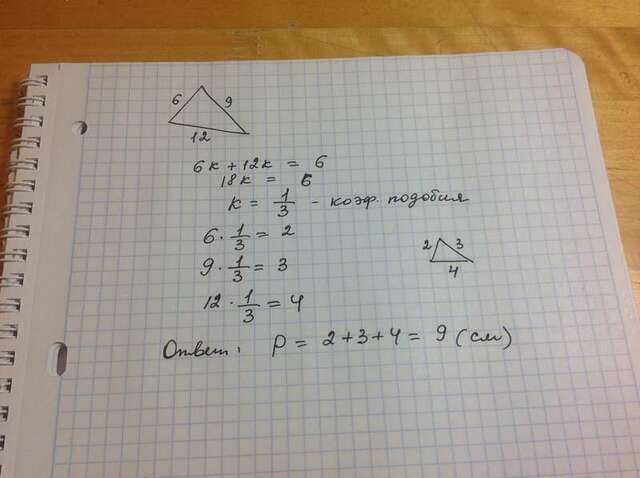 6 9
12
6к + 12к = 6
18к = 6
к = 1/3 - коэф. подобия
6 · 1/3 = 2
2 3
9 · 1/3 = 3
4
12 · 1/3 = 4
Ответ: P = 2+3+4 = 9 (см)